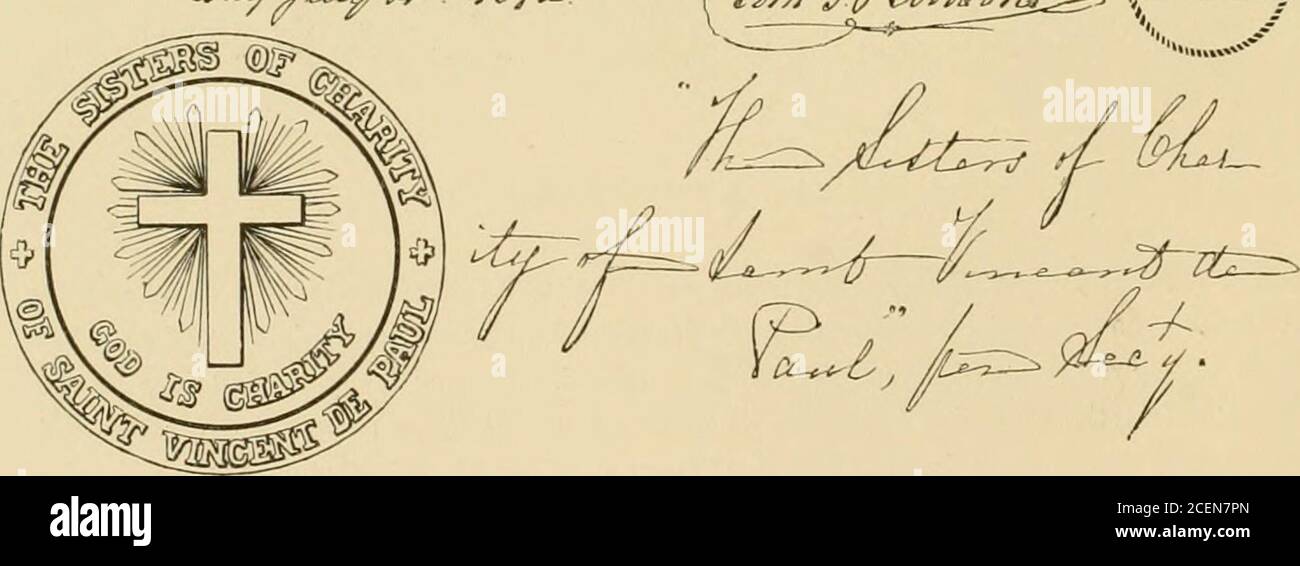 THE SISTERS OF CHARITY
OF SAINT VINCENT DE PAUL
GOD IS CHARITY
"The Sisters of Char
ity of Saint Vincent de
Paul", per Secty.
a alamy
alamy
Image ID: 2CEN7PN
www.alamy.com